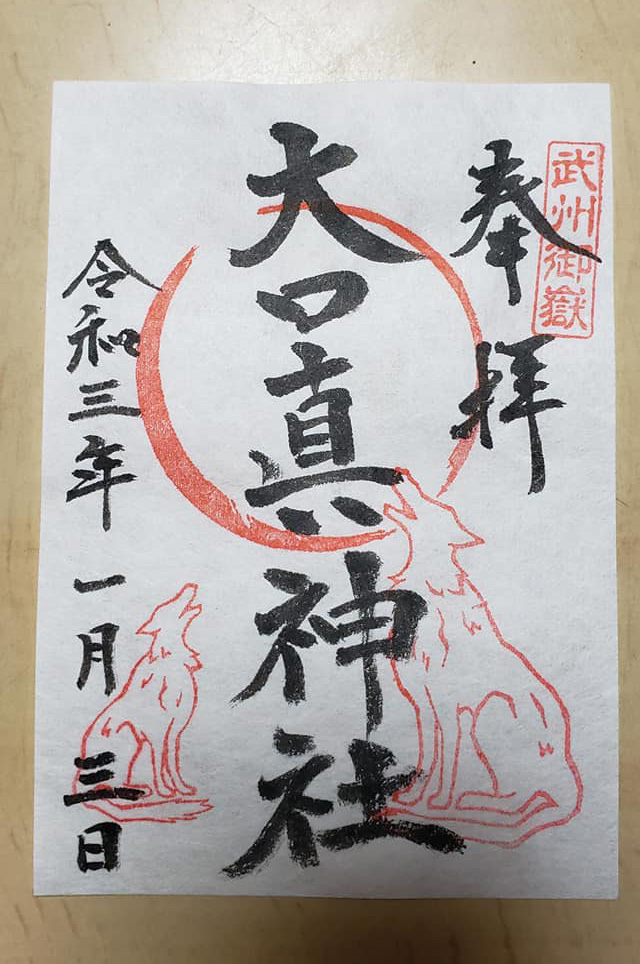 武州御嶽
奉拝
大口真神社
令和三年一月三日